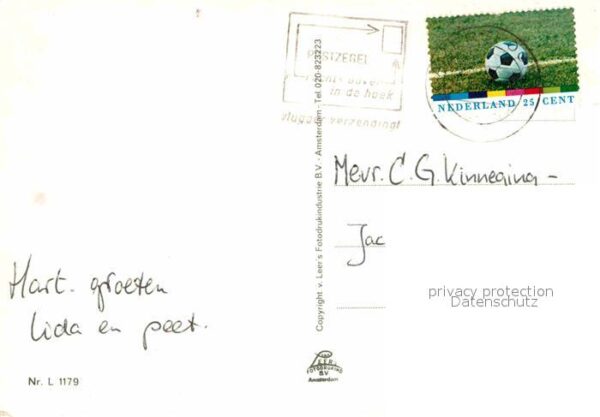 POSTZEGEL
rechts boven
in de hoek
vlugger verzending!
NEDERLAND 25 CENT
Copyright v. Leer's Fotodrukindustrie B.V. - Amsterdam - Tel. 020-823223
Mevr. C. G. Kinneging -
Jac
privacy protection
Datenschutz
Hart. groeten
Lida en peet.
FOTODRUKIND
B.V
Amsterdam
Nr. L 1179